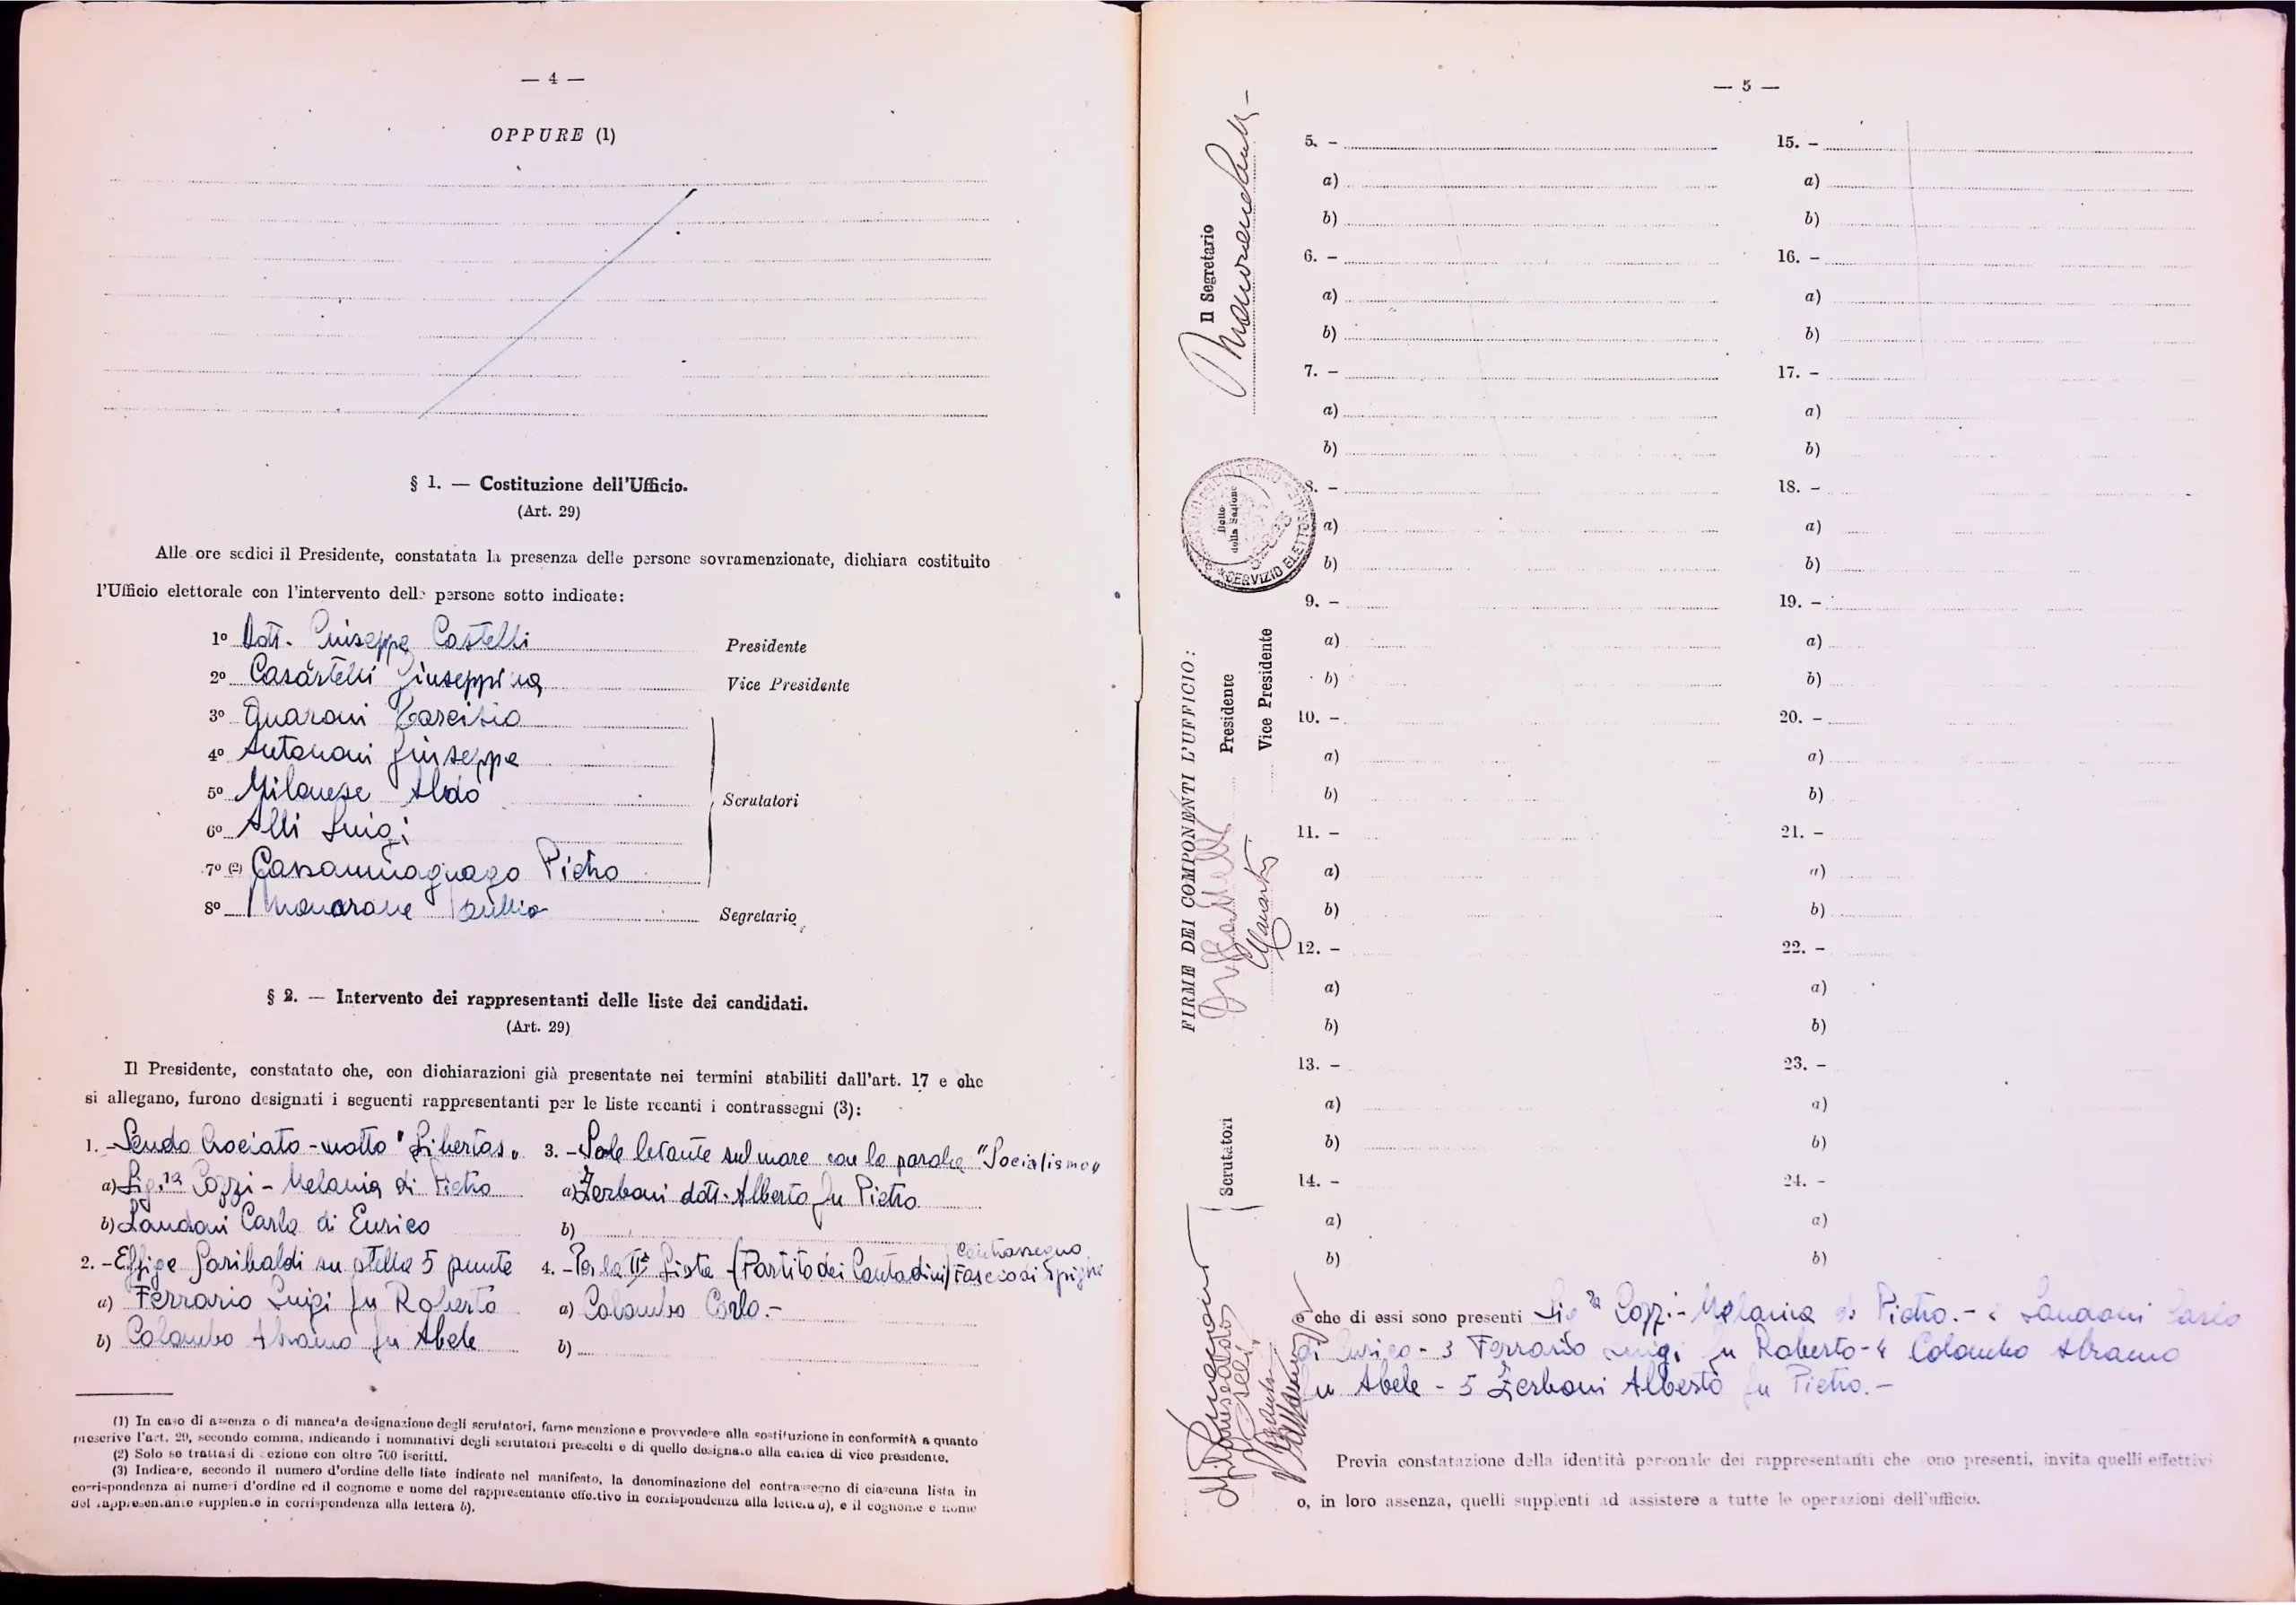 — 4 —
OPPURE (1)
§ 1. — Costituzione dell'Ufficio.
(Art. 29)
Alle ore sedici il Presidente, constatata la presenza delle persone sovramenzionate, dichiara costituito
l'Ufficio elettorale con l'intervento delle persone sotto indicate:
1º Dott. Giuseppe Castelli Presidente
2º Casartelli Giuseppina Vice Presidente
3º Guaroni Tarcisio
4º Antonani Giuseppe
5º Milanese Aldo Scrutatori
6º Alli Luigi
7º (2) Cassanmagnago Pietro
8º Segretario
§ 2. — Intervento dei rappresentanti delle liste dei candidati.
(Art. 29)
Il Presidente, constatato che, con dichiarazioni già presentate nei termini stabiliti dall'art. 17 e che
si allegano, furono designati i seguenti rappresentanti per le liste recanti i contrassegni (3):
1. - Scudo Crociato - motto "Libertas"
a) Sig.na Cozzi - Melania di Pietro
b) Landoni Carlo di Enrico
2. - Effige Garibaldi su stella 5 punte
a) Ferrario Luigi fu Roberto
b) Colombo Abramo fu Abele
3. - Sole levante sul mare con la parola "Socialismo"
a) Zerboni dott. Alberto fu Pietro
b)
4. - Per la IIª Lista (Partito dei Contadini) Contrassegno Fascio di Spighe
a) Colombo Carlo.-
b)
(1) In caso di assenza o di mancata designazione degli scrutatori, farne menzione e provvedere alla costituzione in conformità a quanto
prescrive l'art. 29, secondo comma, indicando i nominativi degli scrutatori prescelti e di quello designato alla carica di vice presidente.
(2) Solo se trattasi di sezione con oltre 700 iscritti.
(3) Indicare, secondo il numero d'ordine delle liste indicato nel manifesto, la denominazione del contrassegno di ciascuna lista in
corrispondenza ai numeri d'ordine ed il cognome e nome del rappresentante effettivo in corrispondenza alla lettera a), e il cognome e nome
del rappresentante supplente in corrispondenza alla lettera b).
— 5 —
FIRME DEI COMPONENTI L'UFFICIO:
Il Segretario
Presidente
Vice Presidente
Scrutatori
Bollo
della Sezione
SERVIZIO ELETTORALE
5. -
a)
b)
6. -
a)
b)
7. -
a)
b)
8. -
a)
b)
9. -
a)
b)
10. -
a)
b)
11. -
a)
b)
12. -
a)
b)
13. -
a)
b)
14. -
a)
b)
15. -
a)
b)
16. -
a)
b)
17. -
a)
b)
18. -
a)
b)
19. -
a)
b)
20. -
a)
b)
21. -
a)
b)
22. -
a)
b)
23. -
a)
b)
24. -
a)
b)
e che di essi sono presenti Sig.na Cozzi - Melania di Pietro.- 2 Landoni Carlo
di Enrico - 3 Ferrario Luigi fu Roberto - 4 Colombo Abramo
fu Abele - 5 Zerboni Alberto fu Pietro.-
Previa constatazione della identità personale dei rappresentanti che sono presenti, invita quelli effettivi
o, in loro assenza, quelli supplenti ad assistere a tutte le operazioni dell'ufficio.